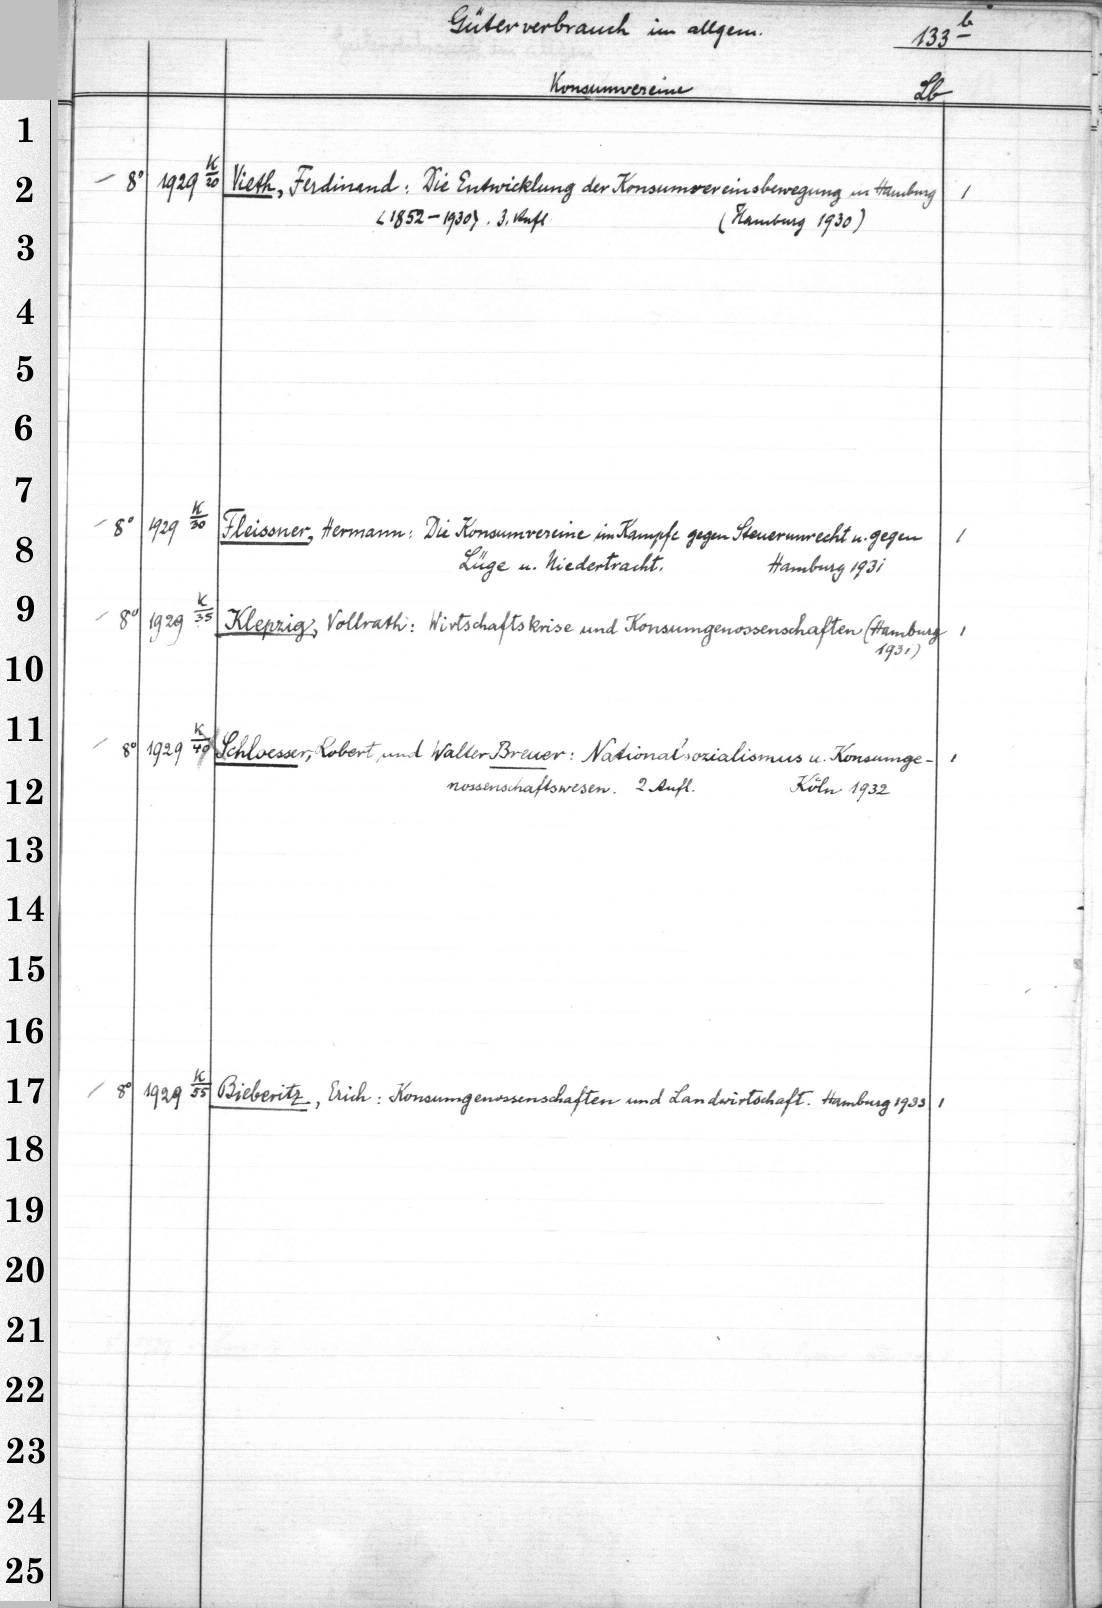 Güterverbrauch im allgem. 133 b
Konsumvereine Lb
1
2 8° 1929 K/20 Vieth, Ferdinand: Die Entwicklung der Konsumvereinsbewegung in Hamburg 1
<1852-1930>. 3. Aufl. (Hamburg 1930)
3
4
5
6
7
8 8° 1929 K/30 Fleissner, Hermann: Die Konsumvereine im Kampfe gegen Steuerunrecht u. gegen 1
Lüge u. Niedertracht. Hamburg 1931
9 8° 1929 K/35 Klepzig, Vollrath: Wirtschaftskrise und Konsumgenossenschaften (Hamburg 1
1931)
10
11 8° 1929 K/49 Schloesser, Robert, und Walter Breuer: Nationalsozialismus u. Konsumge- 1
12 nossenschaftswesen. 2 Aufl. Köln 1932
13
14
15
16
17 8° 1929 K/55 Bieberitz, Erich: Konsumgenossenschaften und Landwirtschaft. Hamburg 1933 1
18
19
20
21
22
23
24
25